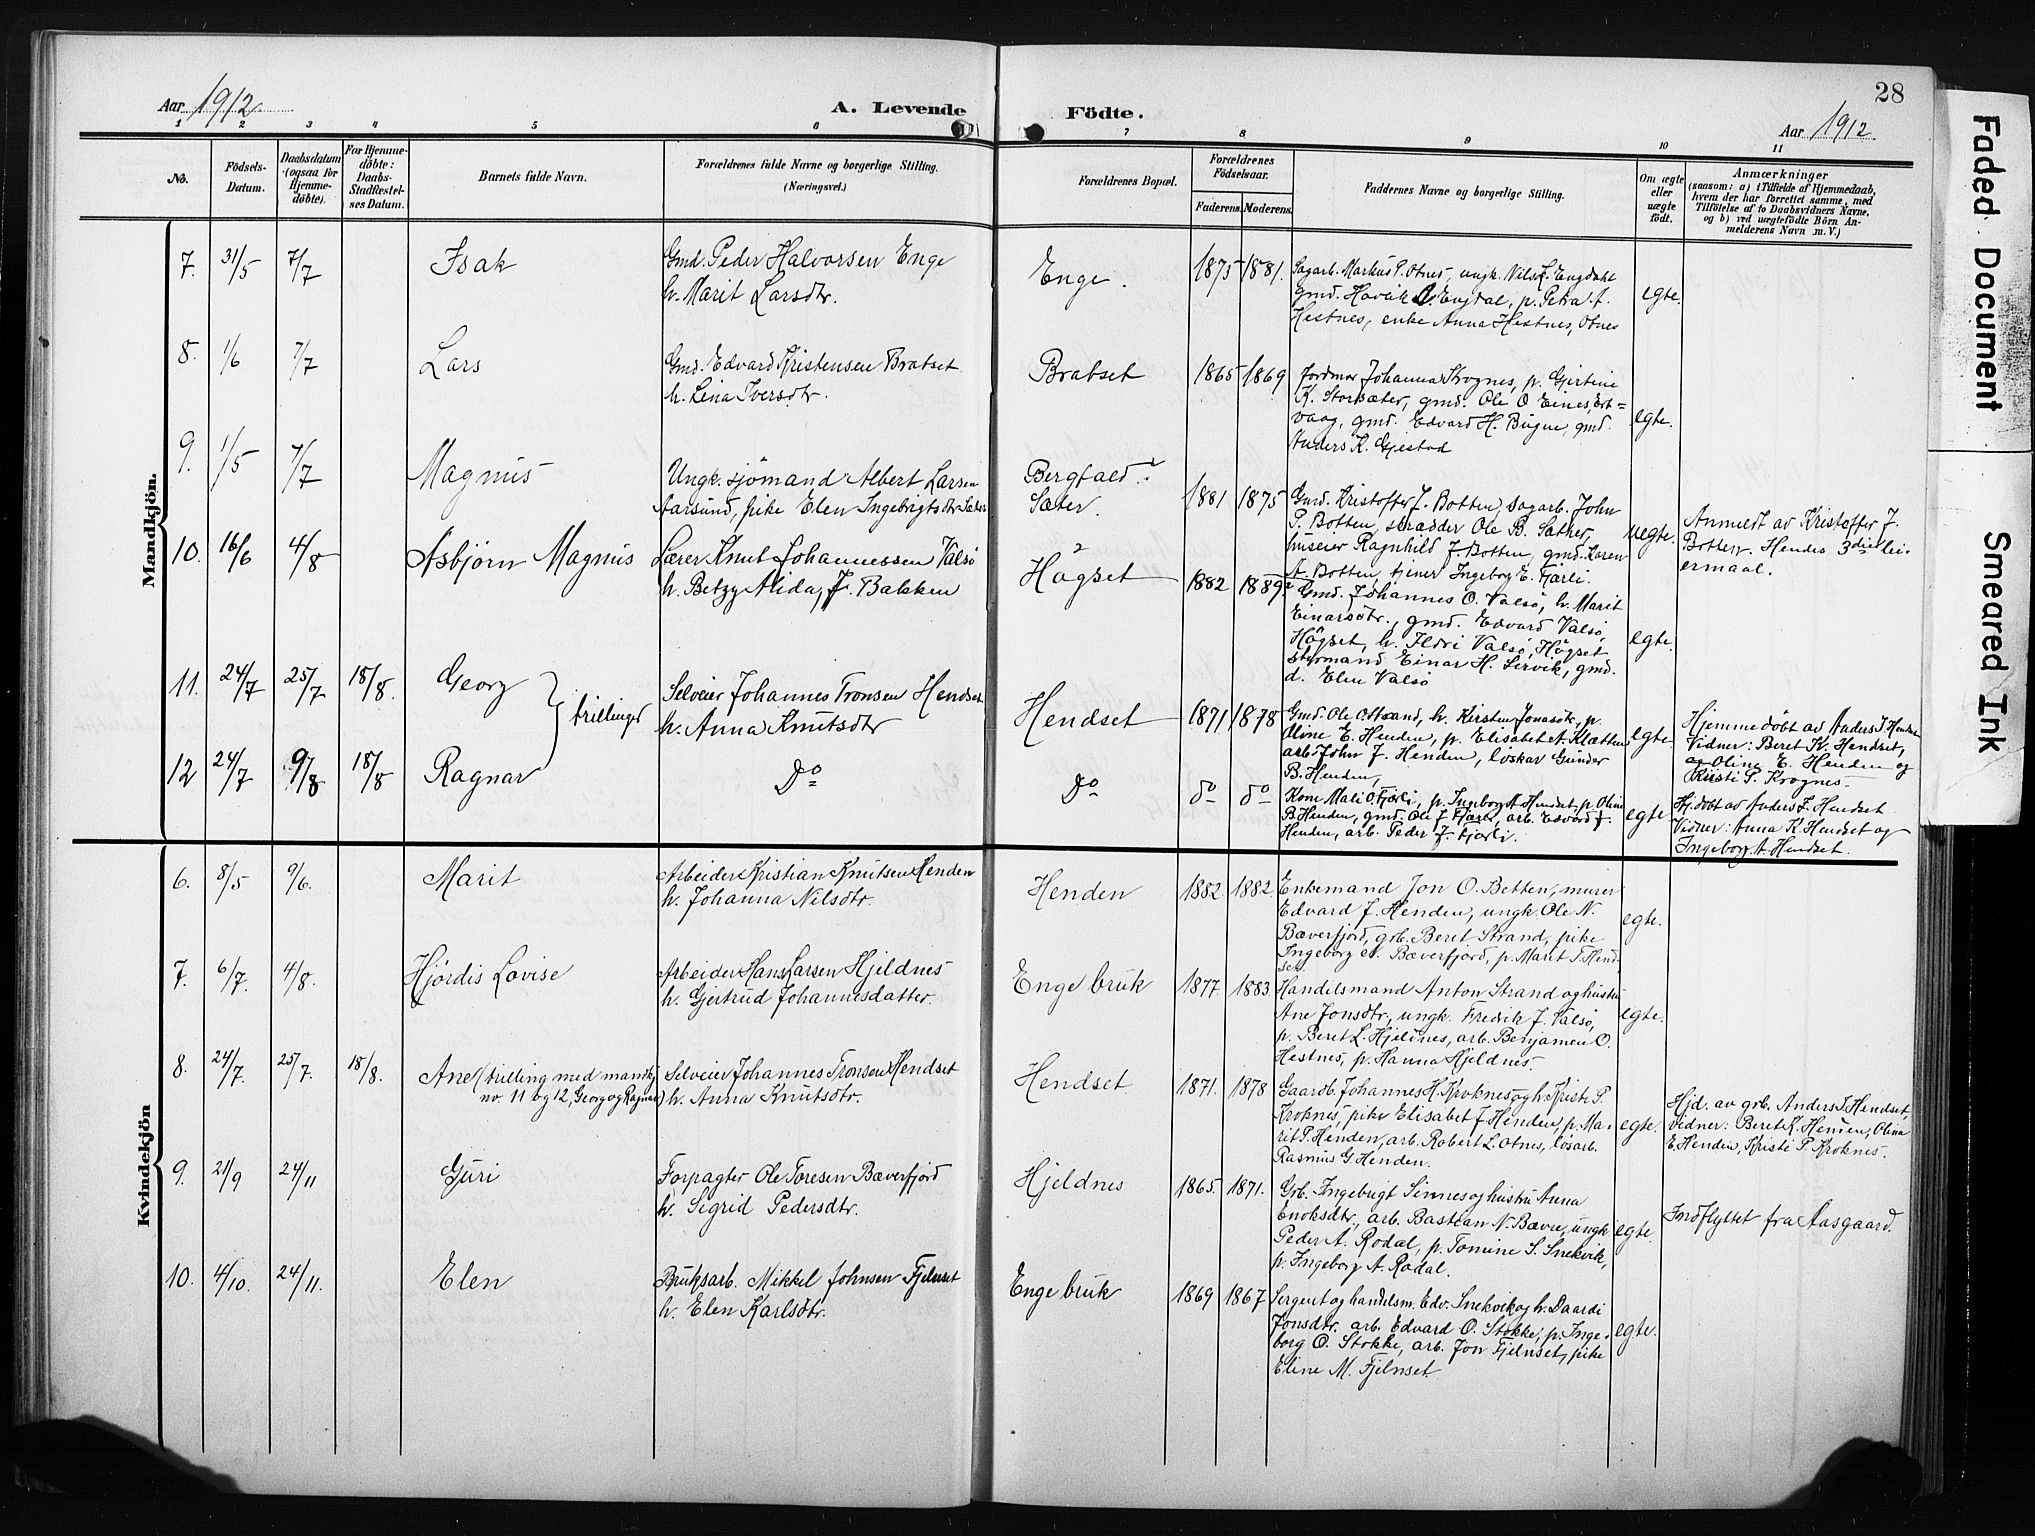 28
Aar 1912
A. Levende
Födte.
Aar 1912
1 2 3 4 5 6 7 8 9 10 11
No.
Födsels-
Datum.
Daabsdatum
(ogsaa for
Hjemme-
döbte).
For Hjemme-
döbte:
Daabs-
Stadfæstel-
ses Datum.
Barnets fulde Navn.
Forældrenes fulde Navne og borgerlige Stilling.
(Næringsvei.)
Forældrenes Bopæl.
Forældrenes
Födselsaar.
Faderens. Moderens.
Faddernes Navne og borgerlige Stilling.
Om ægte
eller
uægte
födt.
Anmærkninger
(saasom: a) i Tilfælde af Hjemmedaab,
hvem der har forrettet samme, med
Tilföielse af to Daabsvidners Navne,
og b) ved uægtefödte Börn An-
melderens Navn m. V.)
Mandkjön.
7. 31/5 7/7 Isak
Gmd. Peder Halvorsen Enge
h. Marit Larsdtr.
Enge.
1875 1881.
Sagarb. Markus P. Otnes, ungk. Nils L. Engdahl
gmd. Engdal, p. Petra A.
Hestnes, enke Anna Hestnes, Otnes
egte.
8. 1/6 7/7 Lars
Gmd. Edvard Kristensen Bratset
h. Lina Iversdtr.
Bratset
1865 1869
Jordmor Johanna Krognes, p. Gjertine
K. Storsæter, gmd. Ole O. Eines, Ert=
vaag, gmd. Edvard H. Bugne, gmd.
Anders K. Gjestad
egte.
9. 1/5 7/7 Magnus
Ungk. sjömand Albert Larsen
Aarsund, pike Elen Ingebrigtsdtr Sæter
Bergfald
Sæter.
1881 1875
Gmd. Kristoffer J. Botten, sagarb. John
P. Botten, skrædder Ole B. Sæther,
huseier Ragnhild J. Botten, gmd. Karen
A. Botten, tjener Ingeborg E. Fjærli.
uegte.
Anmeldt av Kristoffer J.
Botten. Hendes 3die lei-
ermaal.
10. 16/6 4/8 Asbjörn Magnus
Lærer Knut Johannessen Valsö
h. Betzy Alida J. Bakken
Högset
1882 1889
Gmd. Johannes O. Valsö, h. Marit
Einarsdtr., gmd. Edvard Valsö,
Högset, h. Ildri Valsö, Högset
styrmand Einar H. Servik, gmd.
d. Elen Valsö
egte.
11. 24/7 25/7 18/8. Georg
trillinger
Selveier Johannes Tronsen Hendset
h. Anna Knutsdtr
Hendset
1871 1878
Gmd. Ole O. Strand, h. Kirsten Jonasdtr, p.
Oline E. Henden, p. Elisabet A. Kletten
arb. John J. Henden, löskar Gunder
B. Henden,
egte.
Hjemmedöbt av Anders T. Hendset
Vidner: Beret K. Hendset,
Oline E. Henden og
Kristi P. Krognes.
12 24/7 9/8 18/8 Ragnar
Do
Do
do do
Kone Mali O. Fjærli, p. Ingeborg A. Hendset, p. Olina
B. Henden, gmd. Ole J. Fjærli, arb. Edvard J.
Henden, arb. Peder J. Fjærli.
egte.
Hj.döbt av Anders T. Hendset
Vidner: Anna K. Hendset og
Ingeborg A. Hendset.
Kvindekjön
6. 8/5 9/6. Marit
Arbeider Kristian Knutsen Henden
h. Johanna Nilsdtr.
Henden
1882 1882.
Enkemand Jon O. Betten, murer
Edvard J. Henden, ungk. Ole N.
Bæverfjord, grb. Beret Strand, pike
Ingeborg N. Bæverfjord, p. Marit T. Hend-
set.
egte.
7. 6/7. 4/8. Hjördis Lovise
Arbeider Hans Larsen Hjeldnes
h. Gjertrud Johannesdatter.
Enge bruk
1877. 1883
Handelsmand Anton Strand og hustru
Ane Jonsdtr., ungk. Fredrik J. Valsö,
p. Beret L. Hjeldnes, arb. Benjamen O.
Hestnes, p. Hanna Hjeldnes.
egte.
8. 24/7. 25/7. 18/8. Ane (trilling med mandkj.
no. 11 og 12, Georg og Ragnar)
Selveier Johannes Tronsen Hendset
h. Anna Knutsdtr.
Hendset
1871. 1878
Gaardb. Johannes H. Kroknes og h. Kristi P.
Kroknes, pike Elisabet J. Henden, p. Ma-
rit P. Henden, arb. Robert L. Otnes, lösarb.
Rasmus G. Henden.
egte.
Hjd. av grb. Anders T. Hendset,
vidner: Beret K. Henden, Olina
E. Henden, Kristi P. Kroknes.
9. 21/9 24/11 Guri
Forpagter Ole Toresen Bæverfjord
h. Sigrid Pedersdtr.
Hjeldnes
1865. 1871.
Grb. Ingebrigt Sinnes og hustru Anna
Enoksdtr., arb. Bastian N. Bævre, ungk.
Peder A. Rodal, p. Tomine S. Snekvik,
p. Ingeborg A. Rodal.
egte.
Indflyttet fra Aasgaard.
10. 4/10. 24/11. Elen
Bruksarb. Mikkel Johnsen Fjelnset
h. Elen Karlsdtr.
Enge bruk
1869 1867
Sergent og handelsm. Edv. Snekvik og h. Daardi
Jonsdtr. arb. Edvard O. Stokke, p. Inge-
borg O. Stokke, arb. Jon Fjelnset, pike
Eline M. Fjelnset.
egte.
Faded Document
Smeared Ink